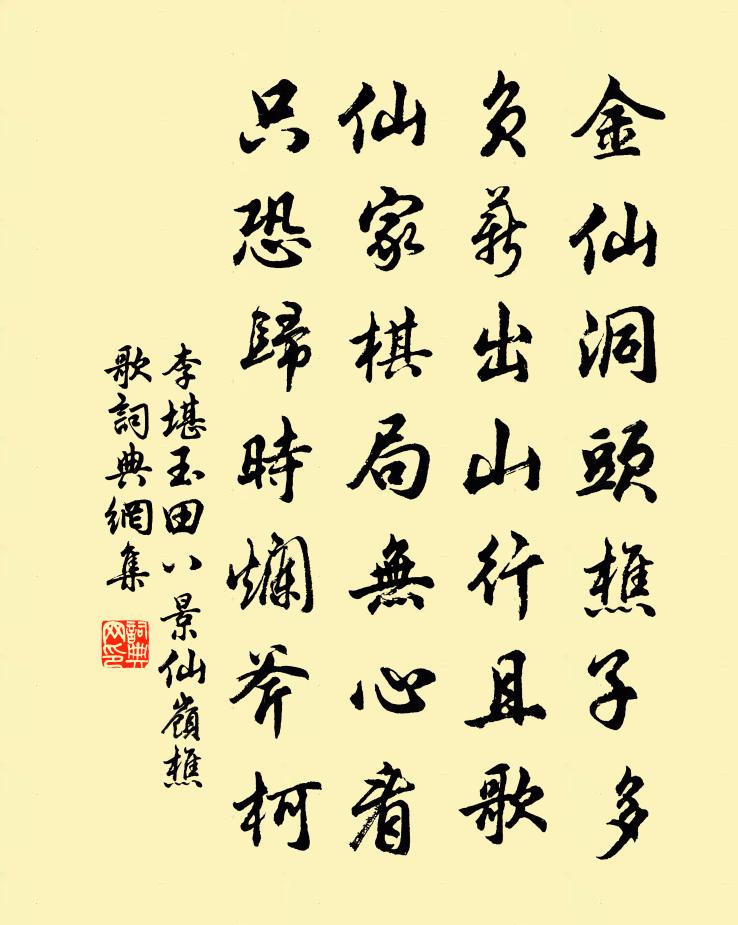 金仙洞頭樵子多
負薪出山行且歌
仙家棋局無心看
只恐歸時爛斧柯
李堪玉田八景仙嶺樵
歌詞典網集
詞典網印